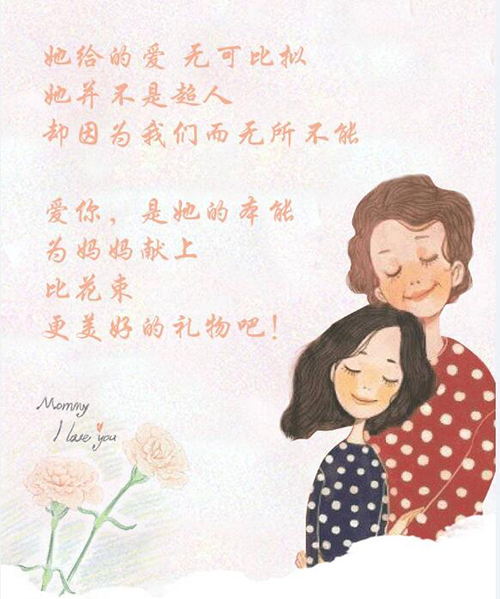 她给的爱 无可比拟
她并不是超人
却因为我们而无所不能
爱你，是她的本能
为妈妈献上
比花束
更美好的礼物吧！
Mommy
I love you